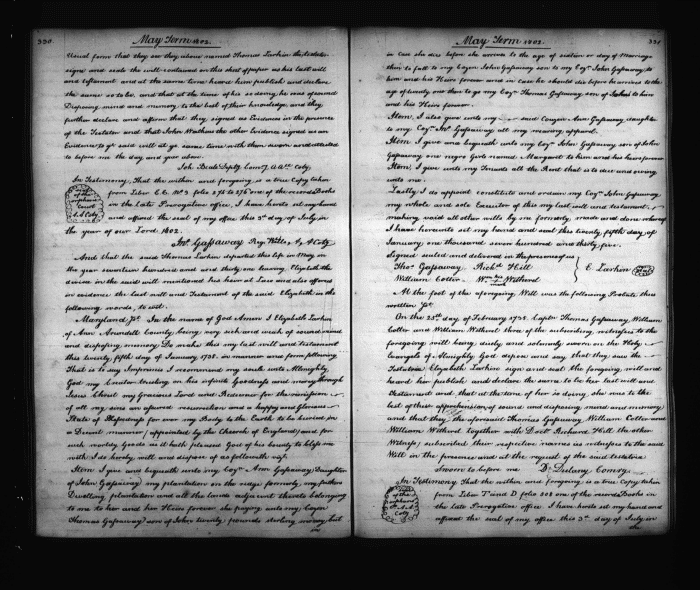 330.
May Term 1802.
Usual form that they saw they above named Thomas Larkin the testator
sign and seale the will endorsed on this sheet of paper as his last will
and testament and at the same time heard him publish and declare
the same so to be, and that at the time of his so doing he was of sound
Disposing mind and memory to the best of their knowledge and they
further declare and affirm that they signed as Evidences in the presence
of the Testator and that John Wathen the other Evidence signed as an
Evidence to ye said will at ye same time with them sworn and attested
to before me the day and year above.
Joh. Beale Depty Comry. A. Arl. Coty
In Testimony, That the within and foregoing, is a true Copy taken
from Liber C.C. No 3 folio 275 to 276 one of the record Books
in the Late Prerogative office, I have hereto set my hand
and affixed the seal of my office this 3d day of July in
the year of our Lord 1802.
Seal
of the
orphans
Court
A.A. Coty
Jno. Gassaway Reg. Wills, A, A Coty
And that the said Thomas Larkin departed this life in May in
the year seventeen hundred and and thirty one leaving Elizabeth the
devisee in the said will mentioned his heir at Law and also offered
in evidence the last will and Testament of the said Elizabeth in the
following words, to wit.
Maryland Ss. In the name of God Amen I Elizabeth Larkin
of Ann Arundell County being very sick and weak of sound mind
and disposing memory Do make this my last will and testament
this twenty fifth day of January 1735. in manner and form following
That is to say Imprimis I recommend my soule unto Allmighty
God my Creator trusting on his infinite Goodness and mercy through
Jesus Christ my Gracious Lord and Redeemer for the remission of
of all my sins an assured resurrection and a happy and Glorious
State of Blessedness for ever my Body to the Earth to be buried in
a Decent manner (appointed by the Church of England) and for
such worldly Goods as it hath pleased God of his bounty to bless me
with I do hereby will and dispose of as followeth viz.
Item I give and bequeath unto my Cozn. Ann Gassaway (Daughter
of John Gassaway) my plantation on the ridge formerly my fathers
Dwelling plantation and all the lands adjacent thereto belonging
to me to her and her Heirs forever she paying unto my Cozen
Thomas Gassaway son of John twenty pounds sterling money but
in
May Term 1802.
331.
in case she dies before she arrives to the age of sixteen or day of Marriage
then to fall to my Cozen John Gassaway son to my Cozn. John Gassaway to
him and his Heirs forever and in case he should die before he arrives to the
age of twenty one then to go my Cozn. Thomas Gassaway son of John to him
and his Heirs forever.
Item, I also give unto my said Cousin Ann Gassaway daughter
to my Cozn. Jno. Gassaway all my wearing apparel.
Item I give and bequeath unto my Cozn. John Gassaway son of John
Gassaway one negro Girl named Margaret to him and his heirs forever
Item, I give unto my Tenants all the Rent that is to due and owing
unto me.
Lastly I do appoint constitute and ordain my Cozn. John Gassaway
my whole and sole Executor of this my last will and testament
making void all other wills by me formerly made and done whereof
I have hereunto set my hand and seal this twenty fifth day of
January one thousand seven hundred and thirty five.
Signed sealed and delivered in the presence of us
Thos. Gassaway. Richd. Hill
William Cotter. Wm. Witherd
E. Larkin
At the foot of the aforegoing Will was the following Probate thus
written Ss.
On the 25th day of February 1735. Captn. Thomas Gassaway, William
Cotter and William Withord three of the subscribing witnesses to the
foregoing will being duely and solemnly sworn on the Holy
Evangels of Almighty God depose and say, that they saw the
Testatrix Elizabeth Larkin sign and seal the foregoing will and
heard her publish and declare the same to be her last will and
testament and that at the time of her so doing she was to the
best of their apprehension of sound and disposing mind and memory
and that they the aforesaid Thomas Gassaway William Cotter and
William Withord Together with Doctr. Richard Hill the other
Witness, subscribed their respective names as witnesses to the said
Will in the presence and at the request of the said testatrix
Sworn to before me Dl. Dulany Comsy.
In Testimony That the within and foregoing, is a true Copy taken
from Liber T and D folio 808 one of the record Books in
the late Prerogative office I have hereto set my hand and
affixed the seal of my office this 3d. day of July in
Seal
of the
orphans
Ct. A.A
Coty
the